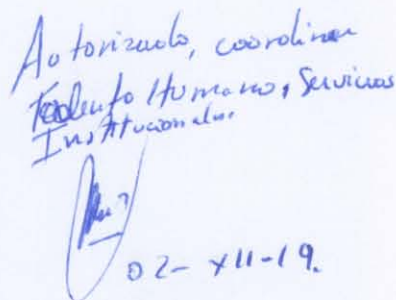 Autorizado, coordinar
Talento Humano, Servicios
Institucionales.
02-XII-19.